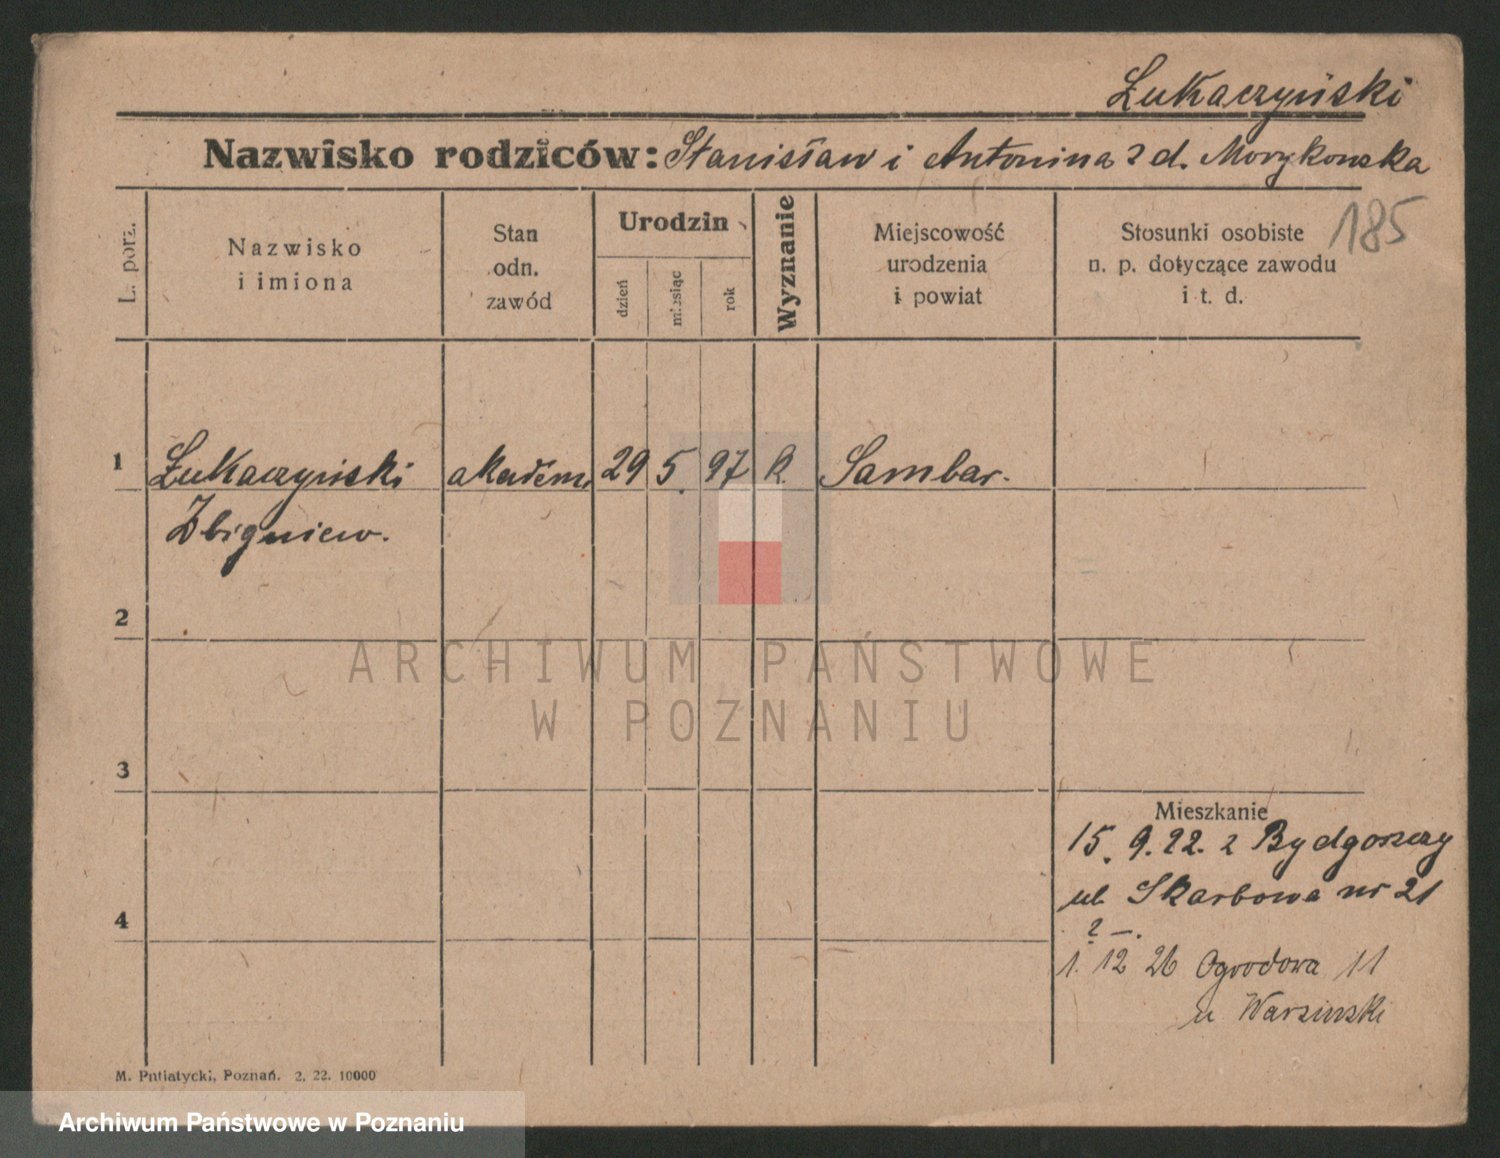 Łukaczyński
Nazwisko rodziców: Stanisław i Antonina z d. Morykonska
185
L. porz.
Nazwisko
i imiona
Stan
odn.
zawód
Urodzin
dzień
miesiąc
rok
Wyznanie
Miejscowość
urodzenia
i powiat
Stosunki osobiste
n. p. dotyczące zawodu
i t. d.
1 Łukaczyński akadem. 29 5. 97 k. Sambar.
Zbigniew.
2
ARCHIWUM PAŃSTWOWE
W POZNANIU
3
Mieszkanie
15. 9. 22. z Bydgoszczy
ul. Skarbowa nr 21
4
? —.
1. 12 26 Ogrodowa 11
u Warsinski
M. Putiatycki, Poznań. 2. 22. 10000
Archiwum Państwowe w Poznaniu